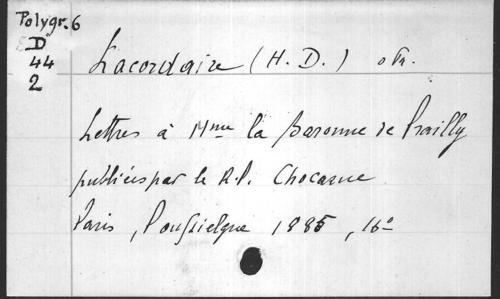 Polygr. 6
D
44
2
Lacordaire (H. D.) o Pr.
Lettres à Mme la Baronne de Prailly
publiées par le R. P. Chocarne
Paris, Poussielgue 1885, 16°